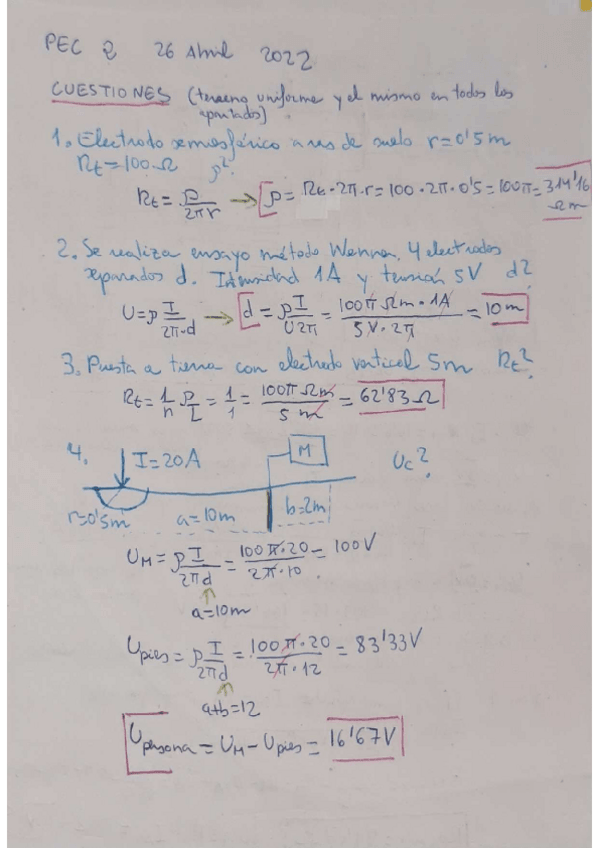 PEC 2 26 Abril 2022
CUESTIONES (terreno uniforme y el mismo en todos los
apartados)
1. Electrodo semiesférico a ras de suelo r=0'5m
Rt=100Ω ρ?
Rt = ρ/2πr → ρ = Rt·2π·r = 100·2π·0'5 = 100π = 314'16
Ωm
2. Se realiza ensayo método Wenner, 4 electrodos
separados d. Intensidad 1A y tensión 5V d?
U=ρ I/2π·d → d = ρ I/U2π = 100π Ωm·1A/5V·2π = 10m
3. Puesta a tierra con electrodo vertical 5m Rt?
Rt = 1/n ρ/L = 1/1 = 100π Ωm/5m = 62'83Ω
4. I=20A M Uc?
r=0'5m a=10m b=2m
UM = ρ I/2πd = 100π·20/2π·10 = 100V
a=10m
Upies = ρ I/2πd = 100π·20/2π·12 = 83'33V
a+b=12
Upersona = UM - Upies = 16'67V